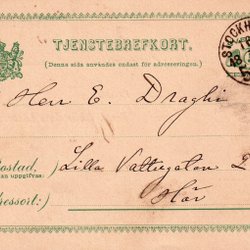 TJENSTEBREFKORT.
(Denna sida användes endast för adresseringen.)
STOCKH
Herr E. Draghi
Bostad.
Lilla Vattugatan 2
an uppgifvas)
Här
dressort:)